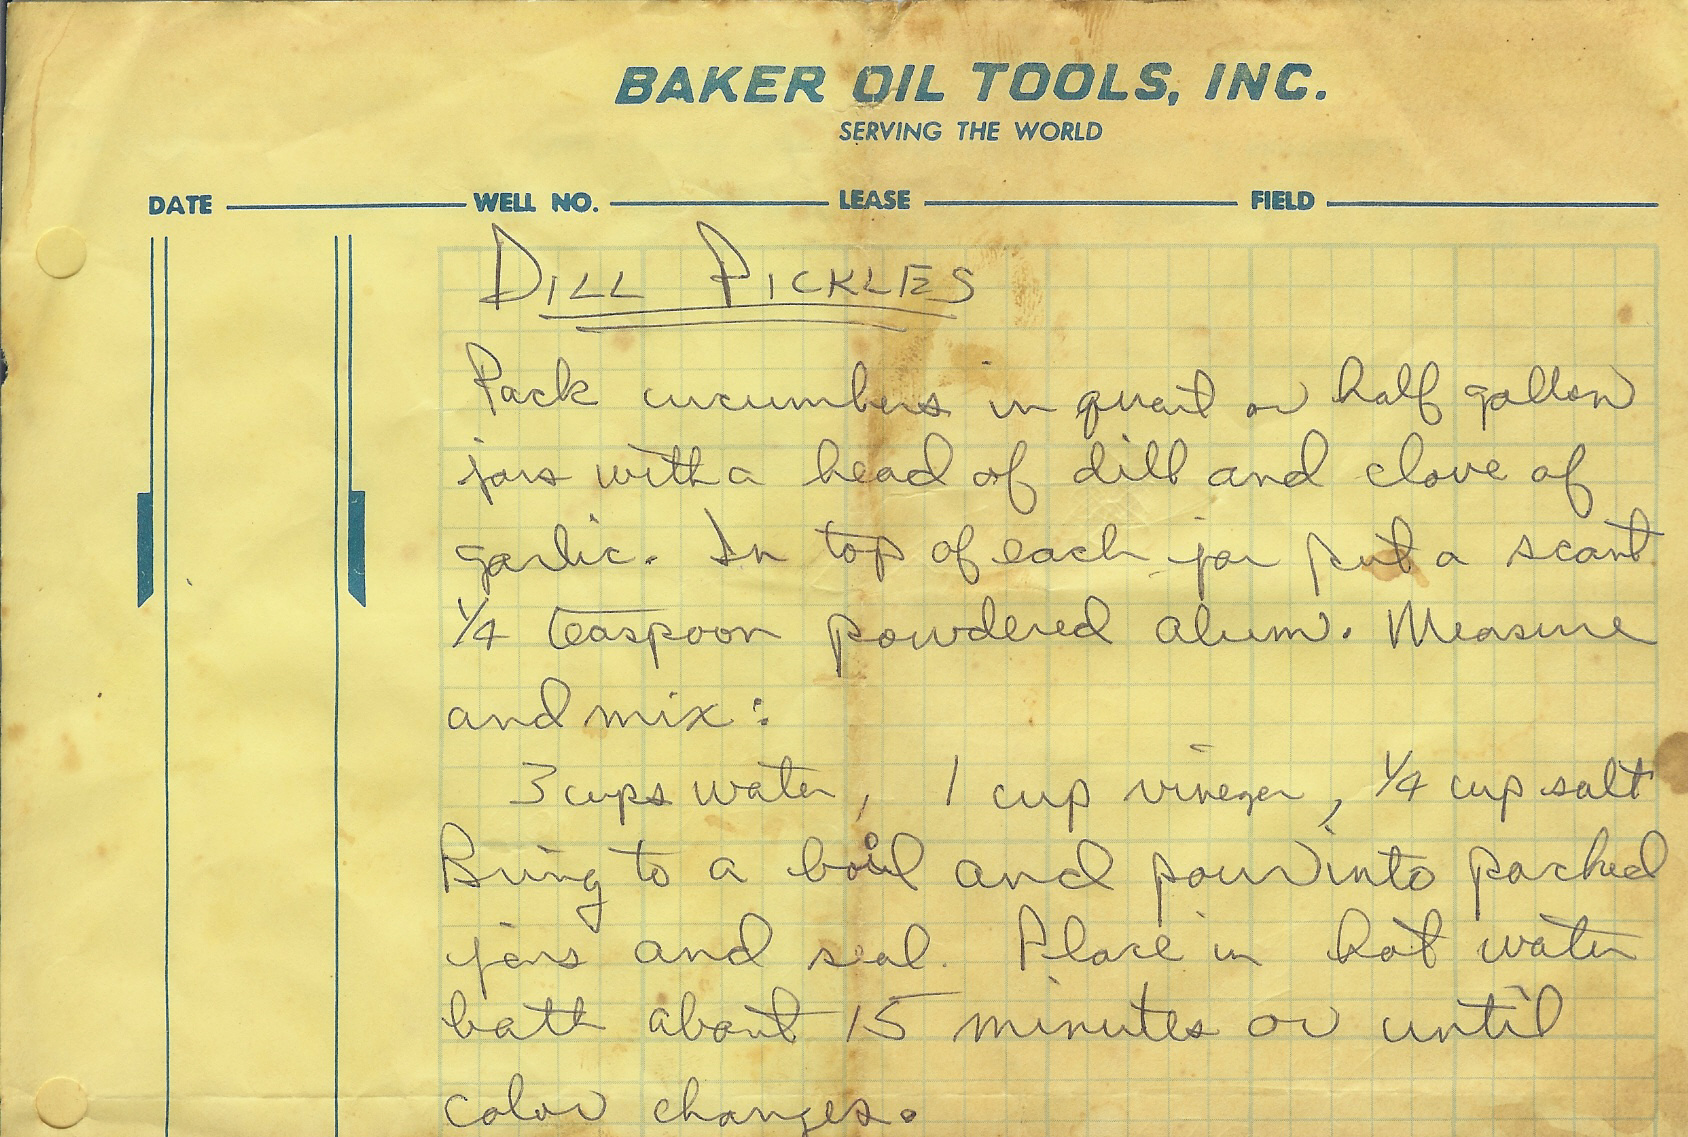 BAKER OIL TOOLS, INC.
SERVING THE WORLD
DATE WELL NO. LEASE FIELD
DILL PICKLES
Pack cucumbers in quart or half gallon
jars with a head of dill and clove of
garlic. In top of each jar put a scant
1/4 teaspoon powdered alum. Measure
and mix:
3 cups water, 1 cup vineger, 1/4 cup salt
Bring to a boil and pour into packed
jars and seal. Place in hot water
bath about 15 minutes or until
color changes.